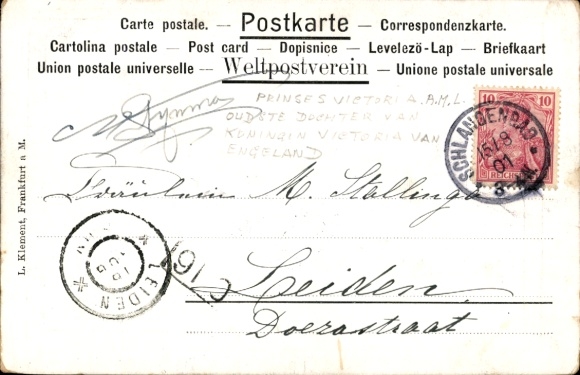 Carte postale. — Postkarte — Correspondenzkarte.
Cartolina postale — Post card — Dopisnice — Levelező-Lap — Briefkaart
Union postale universelle — Weltpostverein — Unione postale universale
PRINSES VICTORIA. A.M.L.
OUDSTE DOCHTER VAN
KONINGIN VICTORIA VAN
ENGELAND
10 10
REICHSPOST
SCHLANGENBAD
15/8
01
Fräulein M. Stallinga
Leiden
Doezastraat
LEIDEN
16
AUG
91
L. Klement, Frankfurt a M.